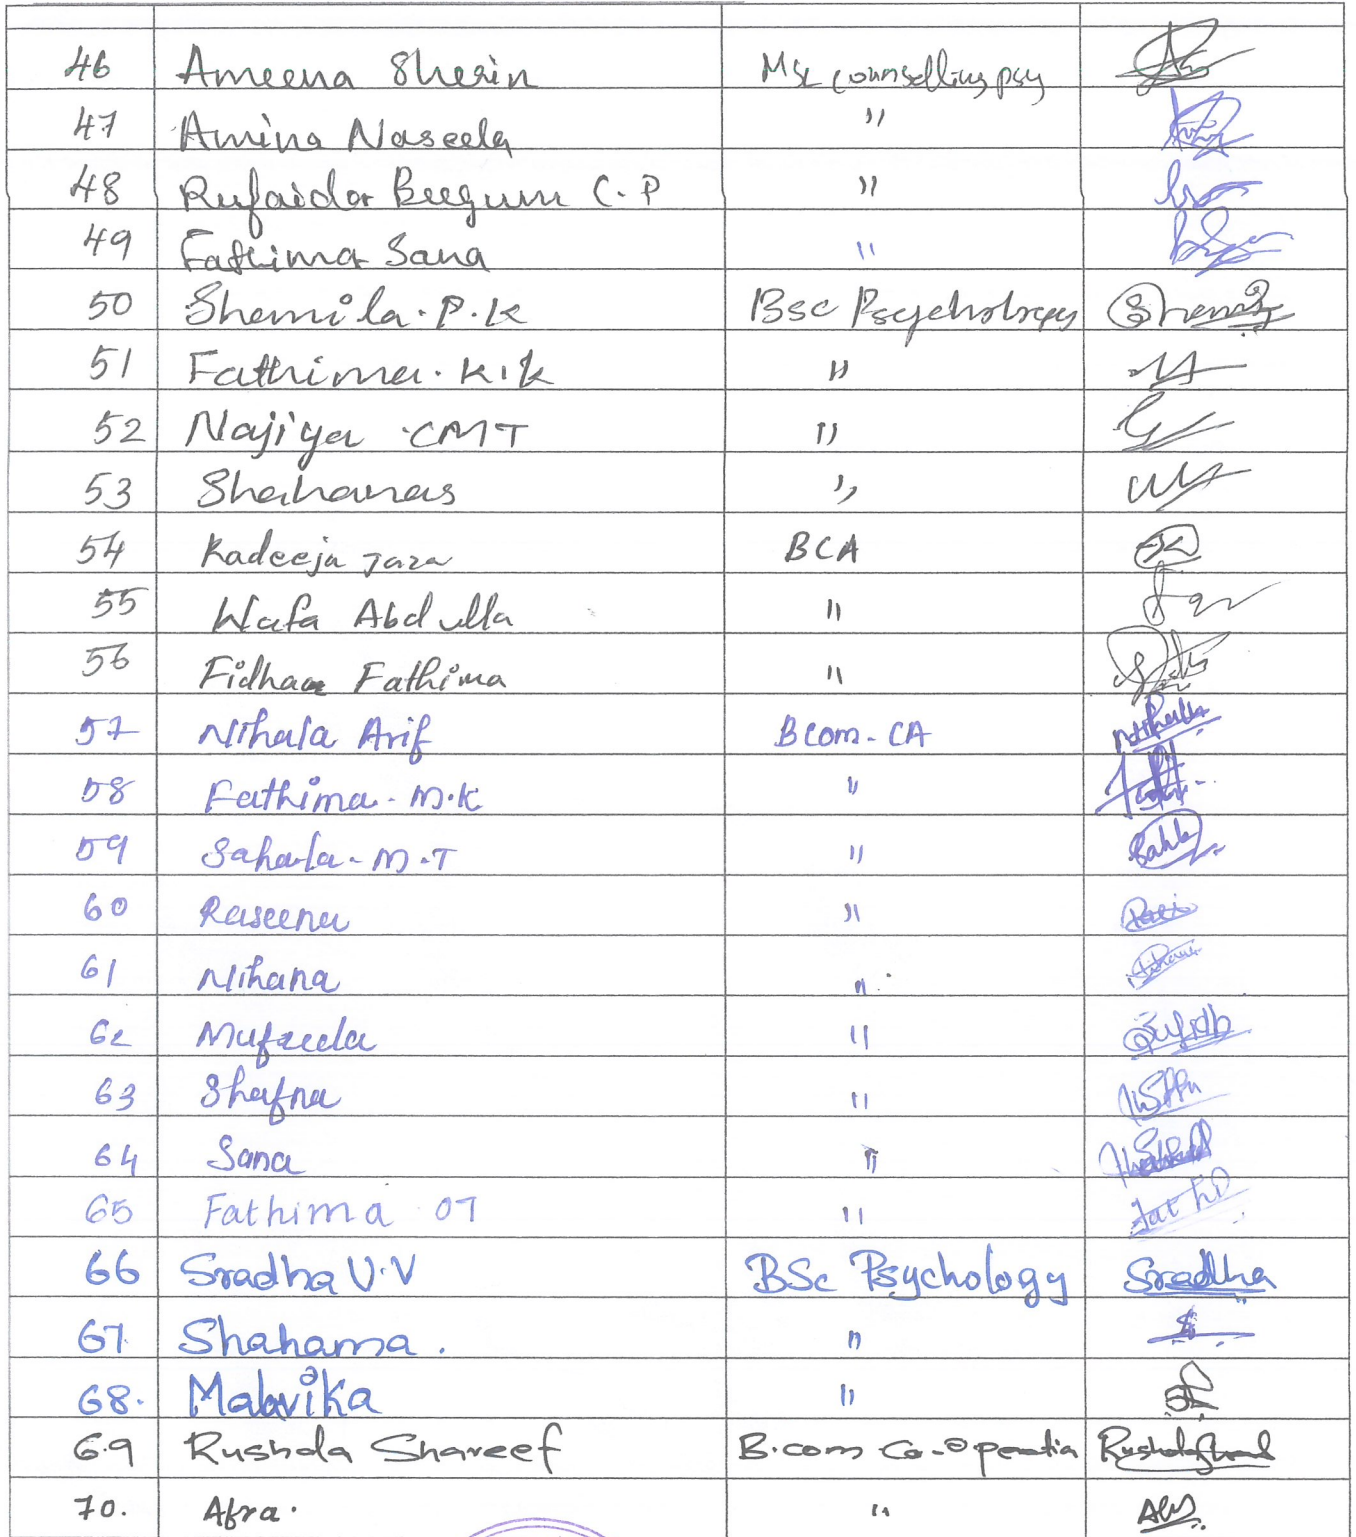 46 Ameena Sherin Msc counselling psy
47 Amina Naseela "
48 Rufaida Beegum C.P "
49 Fathima Sana "
50 Shemila.P.K Bsc Psychology
51 Fathima.K.K "
52 Najiya CMT "
53 Shahanas "
54 Kadeeja Jaza BCA
55 Wafa Abdulla "
56 Fidhaa Fathima "
57 Nihala Arif Bcom-CA Nihala
58 Fathima.M.K "
59 Sahala.M.T " Sahla
60 Raseena "
61 Nihana " Nihana
62 Mufeeda "
63 Shafna "
64 Sana "
65 Fathima OT "
66 Sradha V.V BSc Psychology Sradha
67. Shahama. "
68. Malavika "
69 Rushda Shareef B.com Co-operatia
70. Afra. "